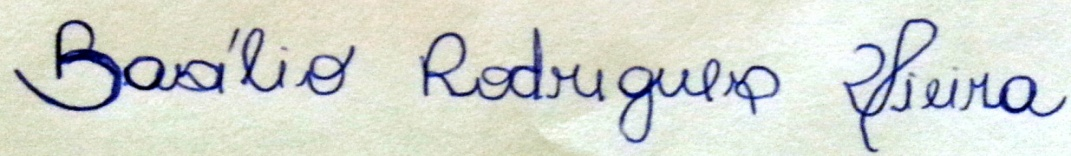 Basílio Rodrigues Vieira